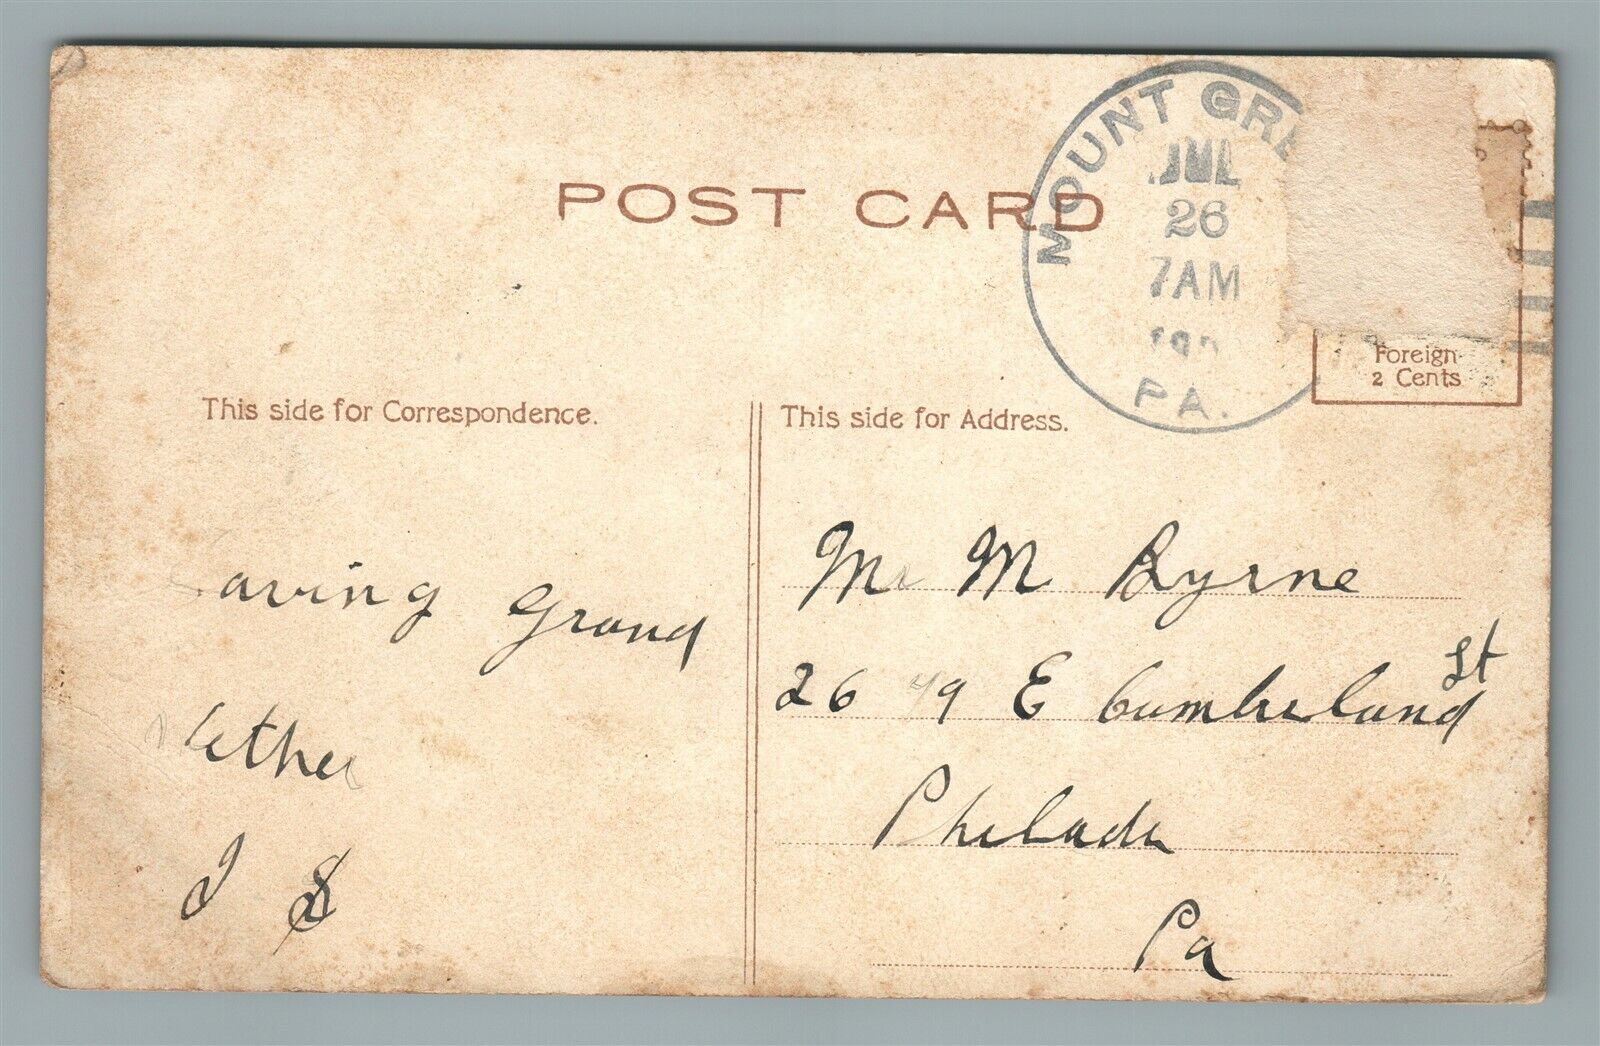 POST CARD
MOUNT GRE
JUL
26
7AM
PA.
Foreign
2 Cents
This side for Correspondence.
This side for Address.
aving grand
I S
Mr M Byrne
26 49 E Cumberland St
Philada
Pa